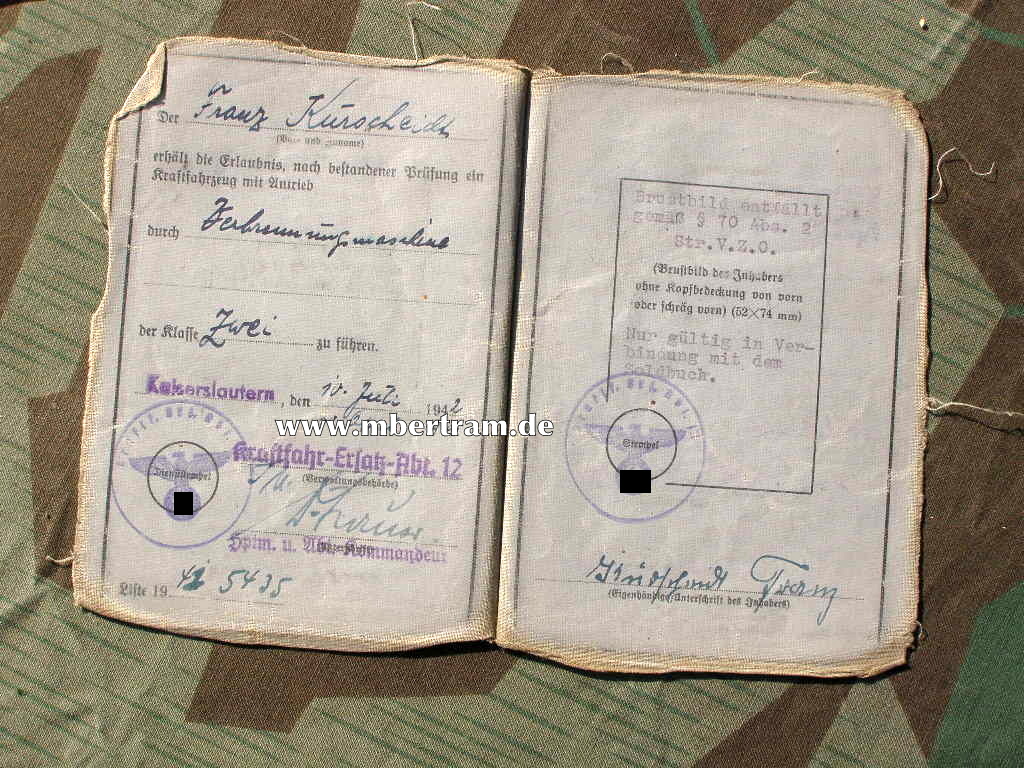 Der Franz Kürscheidt
(Vor- und Zuname)
erhält die Erlaubnis, nach bestandener Prüfung ein
Kraftfahrzeug mit Antrieb
durch Verbrennungsmaschine
der Klasse Zwei zu führen.
Kaiserslautern, den 10. Juli 1942
Kraftfahr-Ersatz-Abt. 12
(Verwaltungsbehörde)
Dienststempel
Hptm. u. Abt.-Kommandeur
Liste 19 42 5435
Brustbild entfällt
gemäß § 70 Abs. 2
Str.V.Z.O.
(Brustbild des Inhabers
ohne Kopfbedeckung von vorn
oder schräg vorn) (52×74 mm)
Nur gültig in Ver-
bindung mit dem
Soldbuch.
Stempel
Kürscheidt Franz
(Eigenhändige Unterschrift des Inhabers)
www.mbertram.de